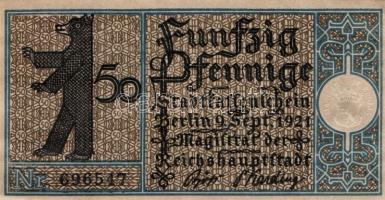 Funfzig
50 Pfennige
Stadtkassenschein
Berlin 9. Sept. 1921
Magistrat der
Reichshauptstadt
Nr. 696547